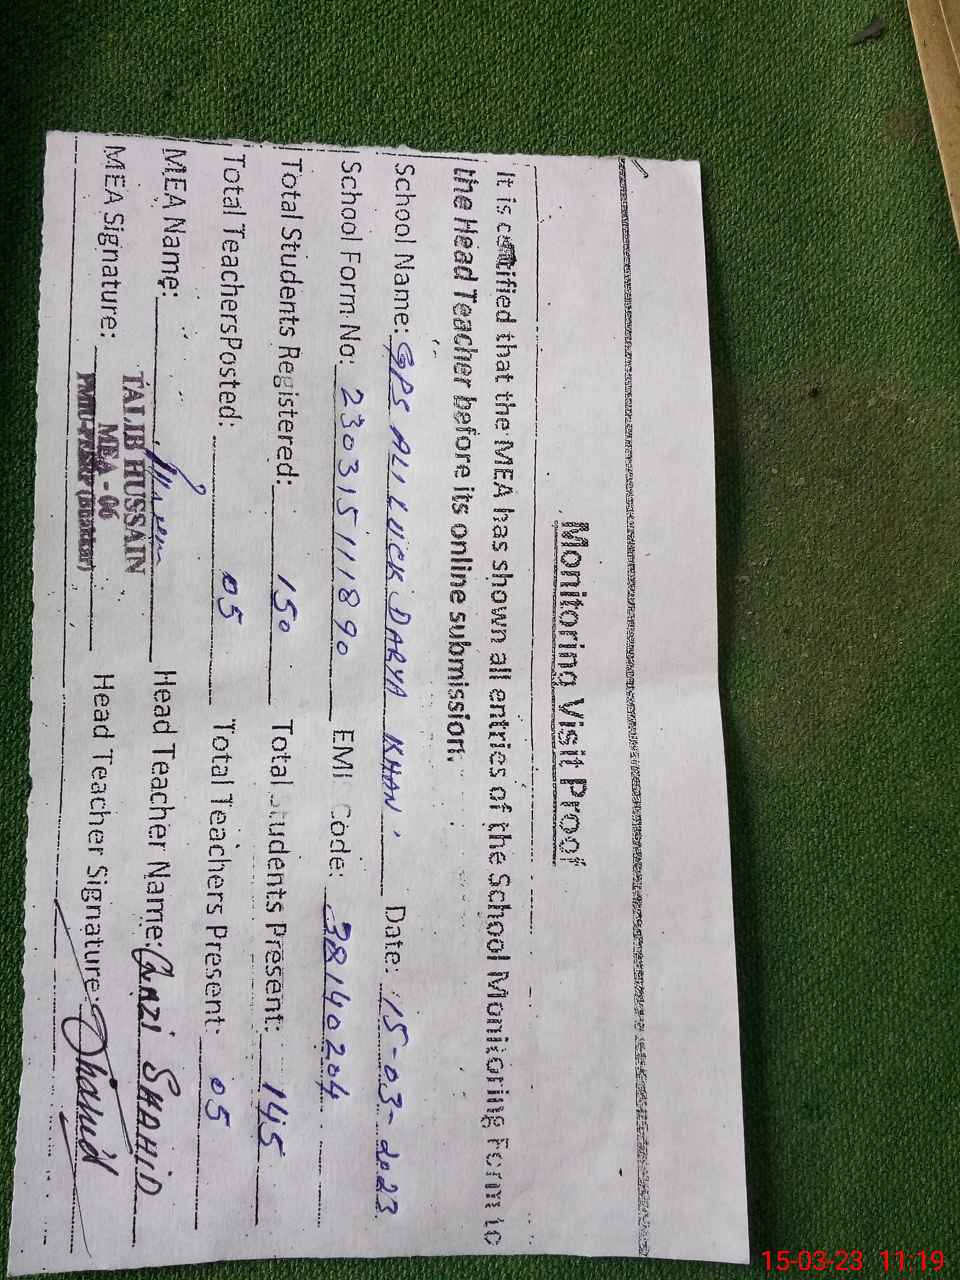 Monitoring Visit Proof
It is certified that the MEA has shown all entries of the School Monitoring Form to
the Head Teacher before its online submission.
School Name: GPS ALI LUCK DARYA KHAN Date: 15-03-2023
School Form No: 2303151111890 EMI Code: 38140204
Total Students Registered: 150 Total Students Present: 145
Total Teachers Posted: 05 Total Teachers Present: 05
MEA Name: Head Teacher Name: Qazi SHAHID
MEA Signature: Head Teacher Signature: Shahid
TALIB HUSSAIN
MEA - 06
15-03-23 11:19